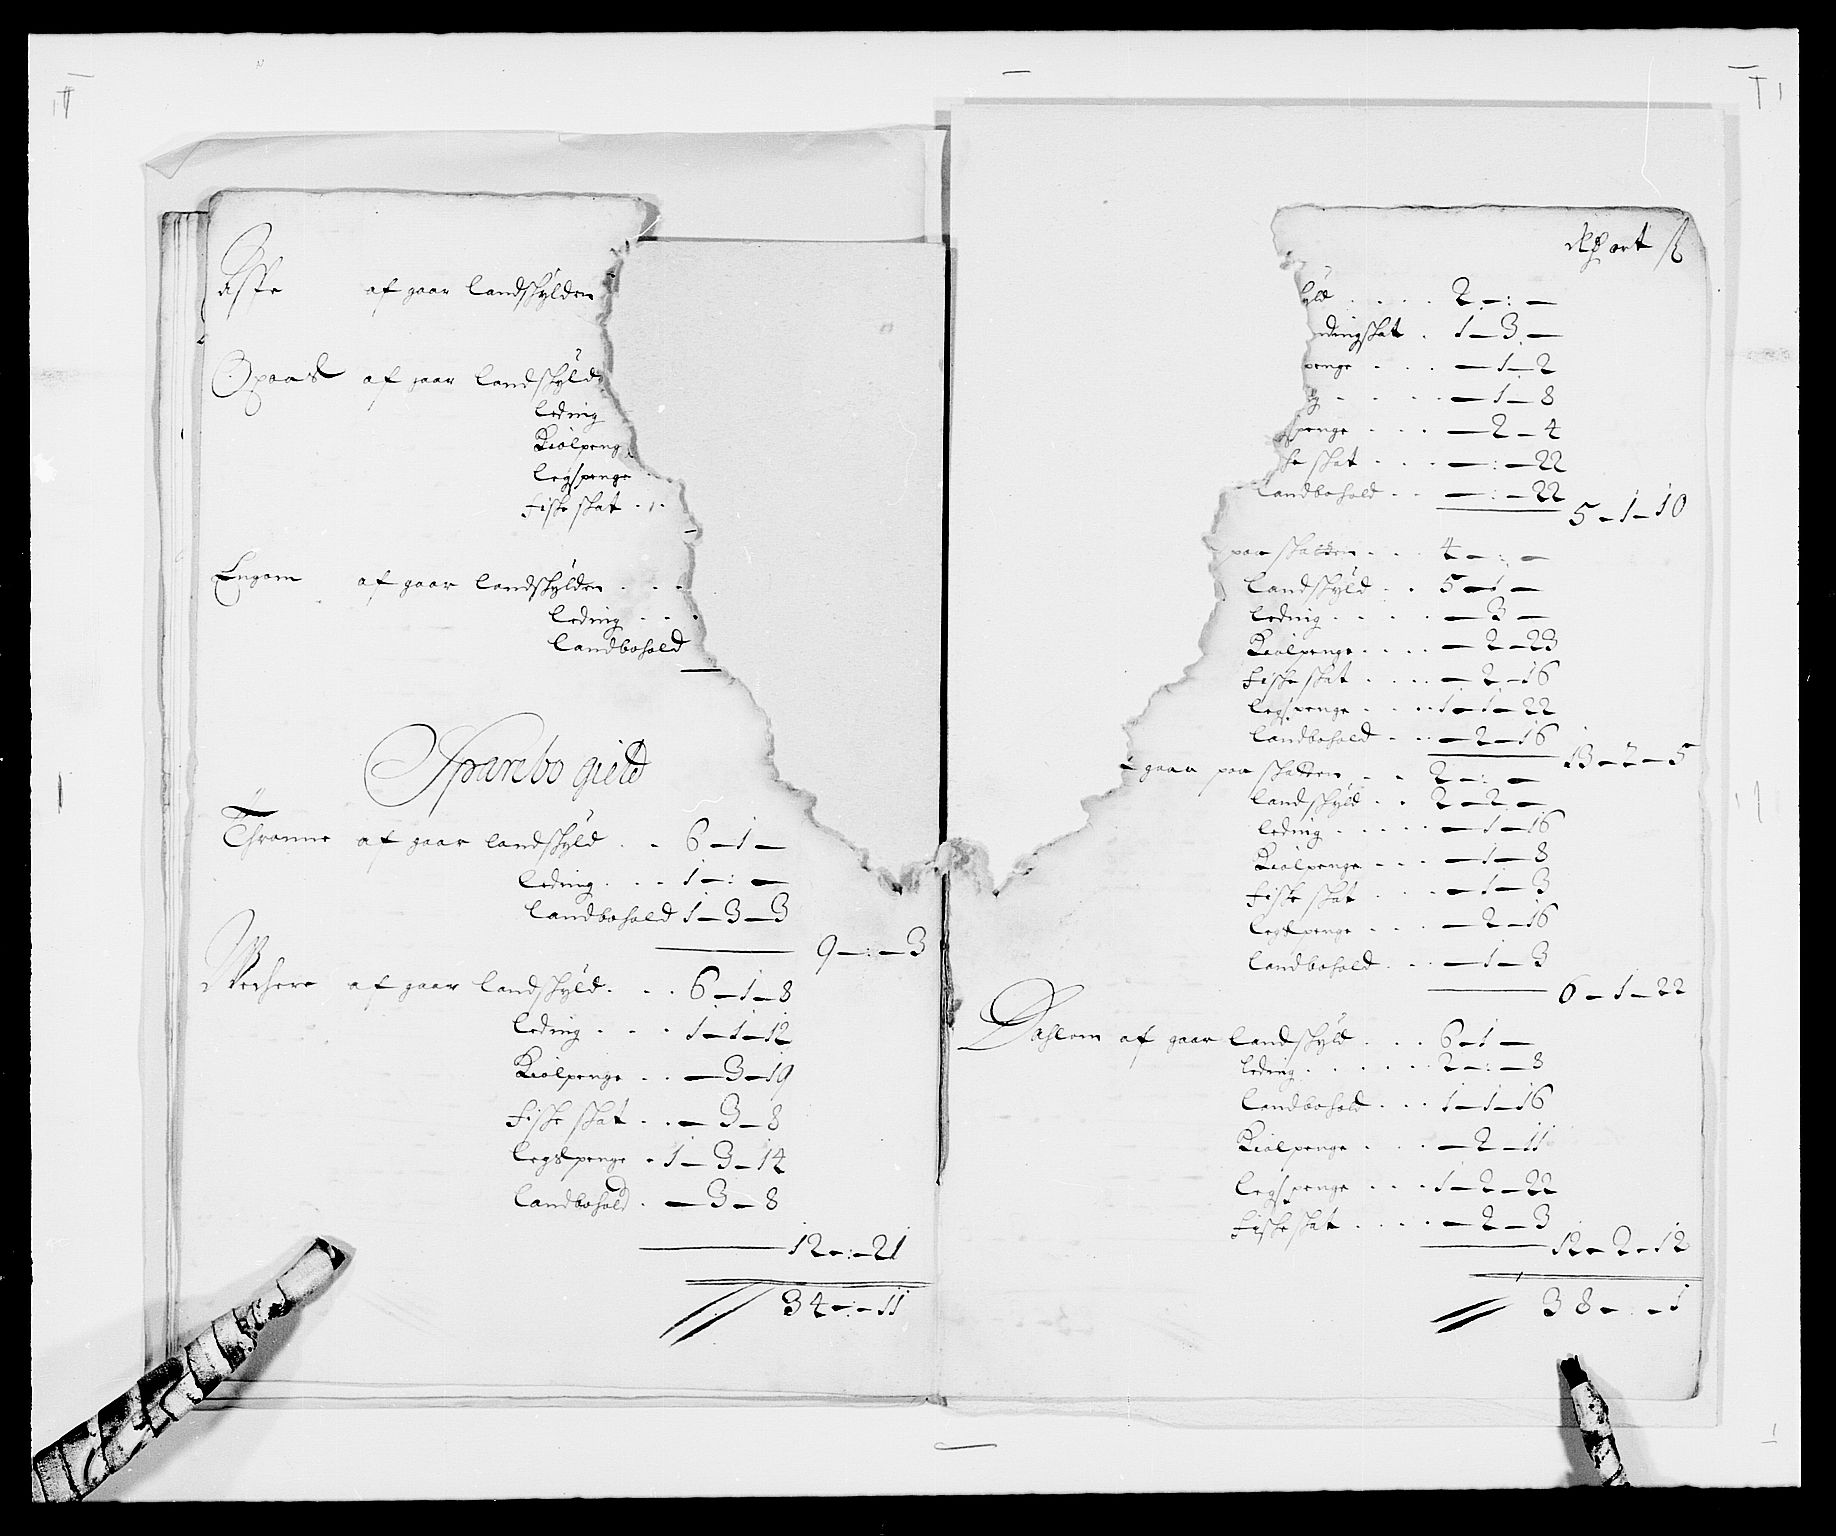 Aske af gaar landskylden
Opaas af gaar landskyld
leding
Kiølpeng
legspenge
fiske skat . . .
Engom af gaar landskylden . . .
leding . . .
landbohold
Sparebo gield
Thronne af gaar landskyld . . 6 – 1 –
leding . . . 1 – : –
landbohold 1 – 3 – 3
9 – : – 3
Medhere af gaar landskyld . . . 6 – 1 – 8
leding . . . 1 – 1 – 12
Kiølpenge . . – 3 – 19
fiske skat . . – 3 – 8
legspenge . 1 – 3 – 14
landbohold . – 3 – 8
12 – : – 21
34 – : – 11
Rd ort ß
kyld . . . . 2 – : –
ledingskat . 1 – 3 –
penge . . . – 1 – 2
g . . . . . – 1 – 8
spenge . . . – 2 – 4
ke skat . . . – : – 22
landbohold . . – : – 22
5 – 1 – 10
paa skatten . . . 4 – : –
landskyld . . 5 – 1 –
leding . . . . . – 3 –
Kiølpenge . . . . – 2 – 23
fiske skat . . . . – 2 – 16
legspenge . . . . 1 – 1 – 22
landbohold . . . – 2 – 16
13 – 2 – 5
gaar paa skatten . . 2 – : –
landskyld . . 2 – 2 –
leding . . . . . – 1 – 16
Kiølpenge . . . – 1 – 8
fiske skat . . . – 1 – 3
legspenge . . . – 2 – 16
landbohold . . . – 1 – 3
6 – 1 – 22
Dahlom af gaar landskyld . . . 6 – 1 –
leding . . . . . . 2 – : – 8
landbohold . . . 1 – 1 – 16
Kiølpenge . . . – 2 – 11
legspenge . . . 1 – 2 – 22
fiske skat . . . . – 2 – 3
12 – 2 – 12
38 – : – 1